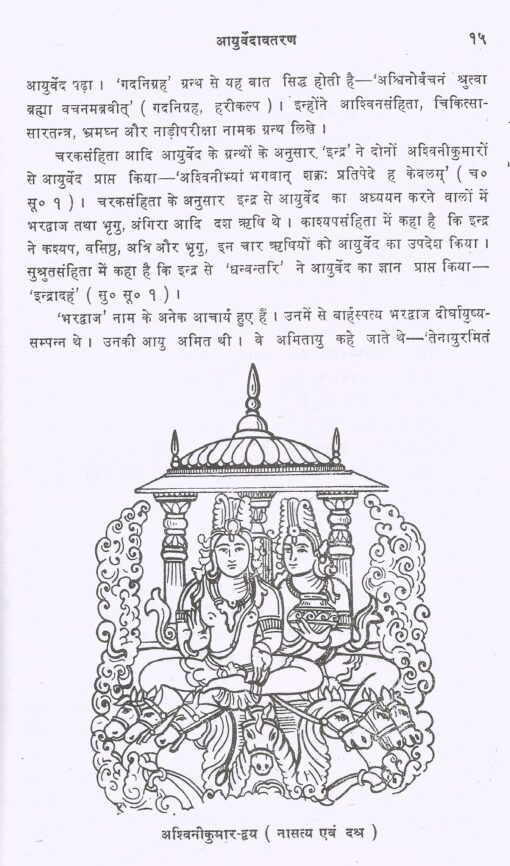 आयुर्वेदावतरण १५
आयुर्वेद पढ़ा । 'गदनिग्रह' ग्रन्थ से यह बात सिद्ध होती है—'अश्विनोर्वचनं श्रुत्वा
ब्रह्मा वचनमब्रवीत्' ( गदनिग्रह, हरीकल्प ) । इन्होंने आश्विनसंहिता, चिकित्सा-
सारतन्त्र, भ्रमघ्न और नाड़ीपरीक्षा नामक ग्रन्थ लिखे ।
चरकसंहिता आदि आयुर्वेद के ग्रन्थों के अनुसार 'इन्द्र' ने दोनों अश्विनीकुमारों
से आयुर्वेद प्राप्त किया—'अश्विनीभ्यां भगवान् शक्रः प्रतिपेदे ह केवलम्' ( च०
सू० १ ) । चरकसंहिता के अनुसार इन्द्र से आयुर्वेद का अध्ययन करने वालों में
भरद्वाज तथा भृगु, अंगिरा आदि दश ऋषि थे । काश्यपसंहिता में कहा है कि इन्द्र
ने कश्यप, वसिष्ठ, अत्रि और भृगु, इन चार ऋषियों को आयुर्वेद का उपदेश किया ।
सुश्रुतसंहिता में कहा है कि इन्द्र से 'धन्वन्तरि' ने आयुर्वेद का ज्ञान प्राप्त किया—
'इन्द्रादहं' ( सु० सू० १ ) ।
'भरद्वाज' नाम के अनेक आचार्य हुए हैं । उनमें से बार्हस्पत्य भरद्वाज दीर्घायुष्य-
सम्पन्न थे । उनकी आयु अमित थी । वे अमितायु कहे जाते थे—'तेनायुरमितं
अश्विनीकुमार-द्वय ( नासत्य एवं दश्र )